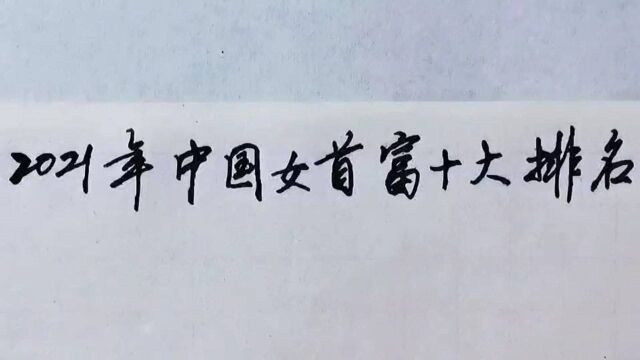 2021年中国女首富十大排名